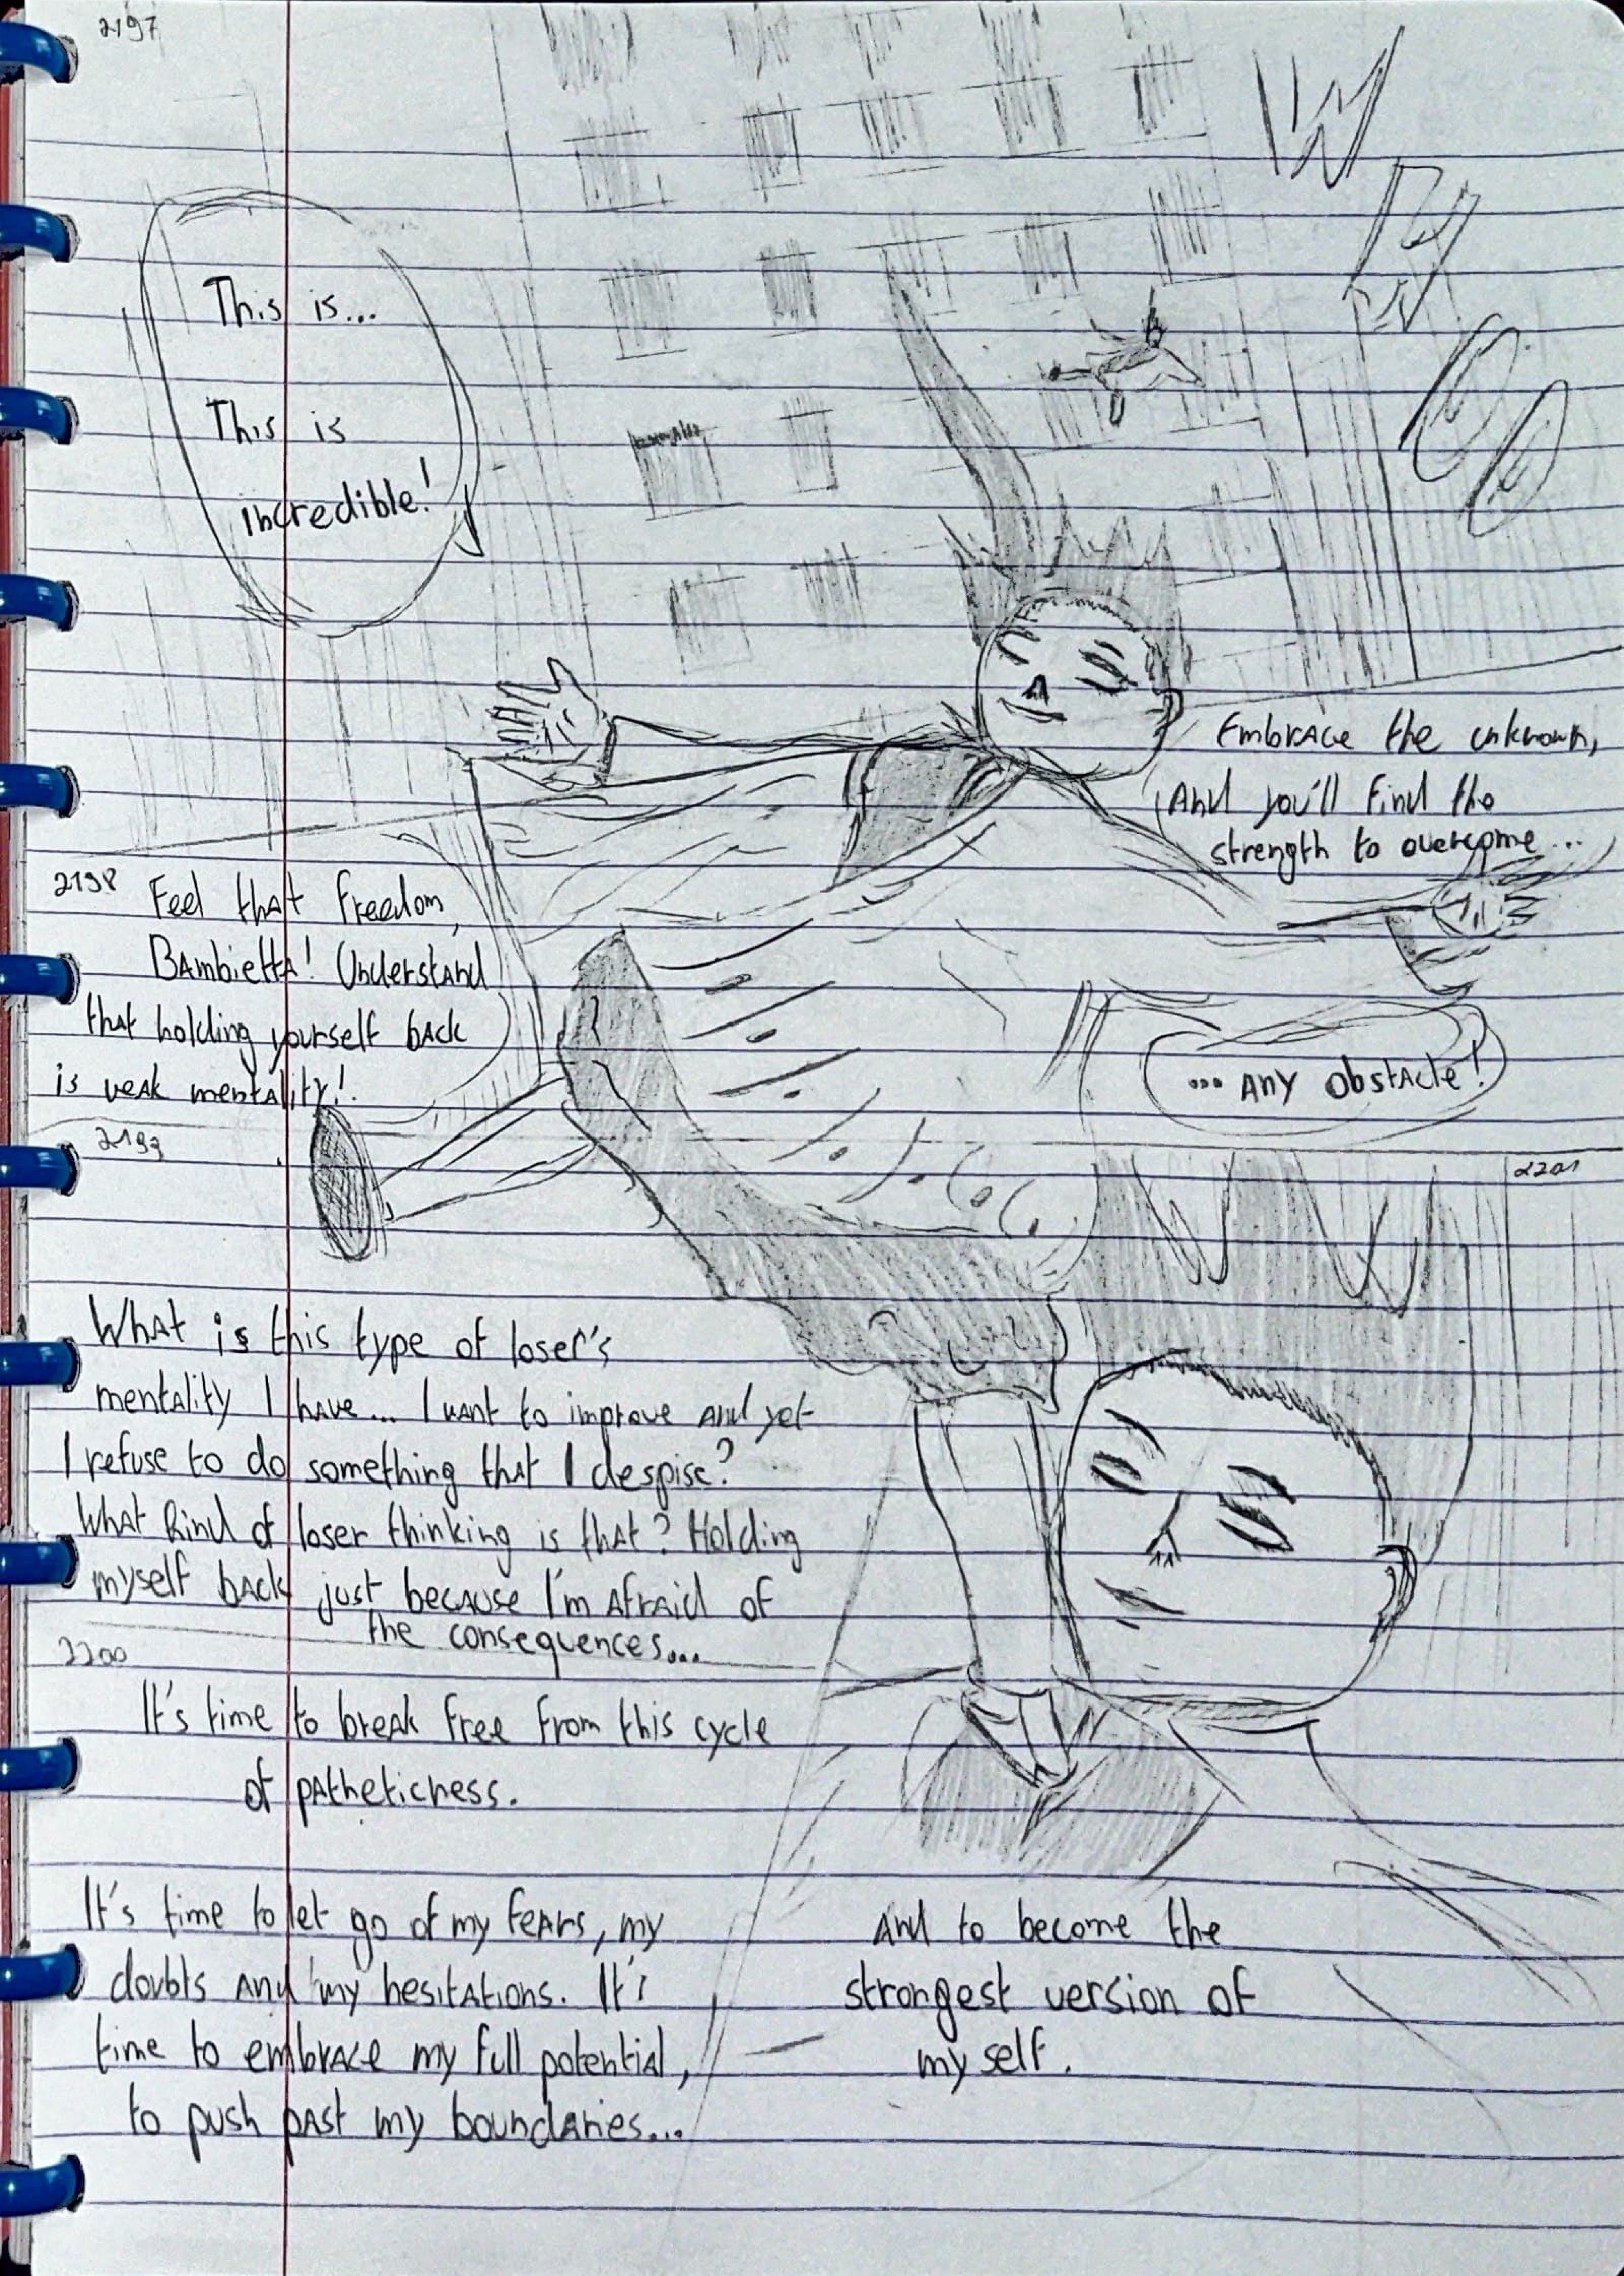 2197
WHOO
This is...
This is
incredible!
Embrace the unknown,
And you'll find the
strength to overcome...
... Any obstacle!
2198
Feel that freedom,
Bambietta! Understand
that holding yourself back
is weak mentality!
2199
What is this type of loser's
mentality I have... I want to improve and yet
I refuse to do something that I despise?
What kind of loser thinking is that? Holding
myself back just because I'm afraid of
the consequences...
2200
It's time to break free from this cycle
of patheticness.
It's time to let go of my fears, my
doubts and my hesitations. It's
time to embrace my full potential,
to push past my boundaries...
2201
And to become the
strongest version of
my self.